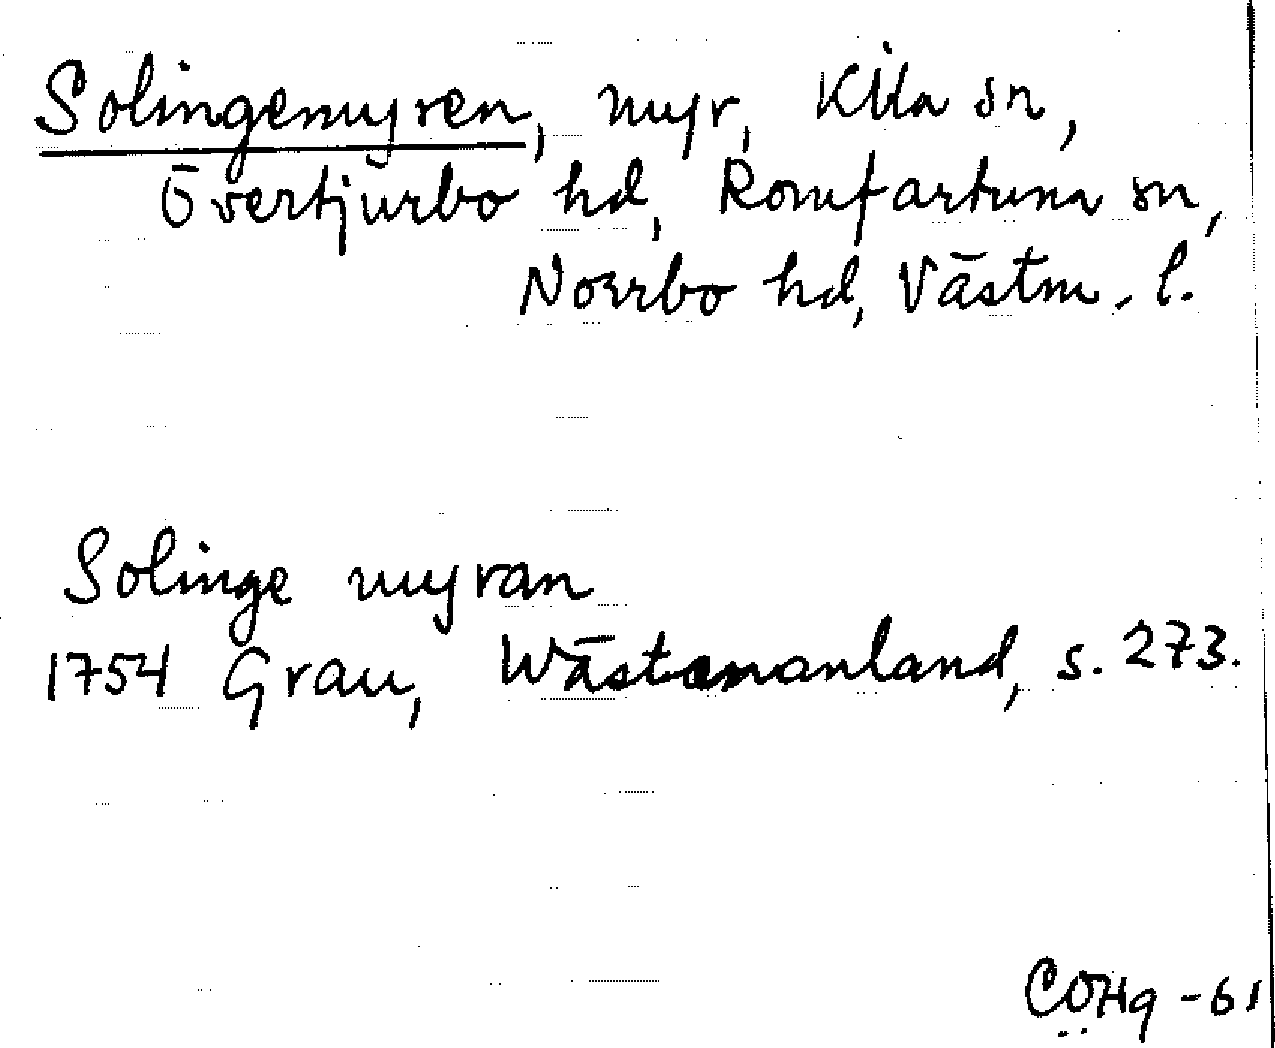 Solingemyren, myr, Kila sn,
Övertjurbo hd, Romfartuna sn,
Norrbo hd, Västm. l.
Solinge myran
1754 Grau, Wästmanland, s. 273.